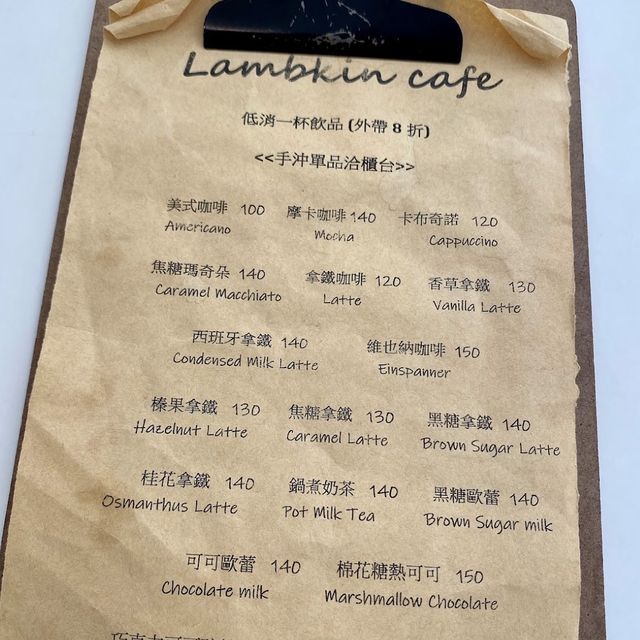 Lambkin cafe
低消一杯飲品 (外帶 8 折)
<<手沖單品洽櫃台>>
美式咖啡 100 摩卡咖啡 140 卡布奇諾 120
Americano Mocha Cappuccino
焦糖瑪奇朵 140 拿鐵咖啡 120 香草拿鐵 130
Caramel Macchiato Latte Vanilla Latte
西班牙拿鐵 140 維也納咖啡 150
Condensed Milk Latte Einspanner
榛果拿鐵 130 焦糖拿鐵 130 黑糖拿鐵 140
Hazelnut Latte Caramel Latte Brown Sugar Latte
桂花拿鐵 140 鍋煮奶茶 140 黑糖歐蕾 140
Osmanthus Latte Pot Milk Tea Brown Sugar milk
可可歐蕾 140 棉花糖熱可可 150
Chocolate milk Marshmallow Chocolate